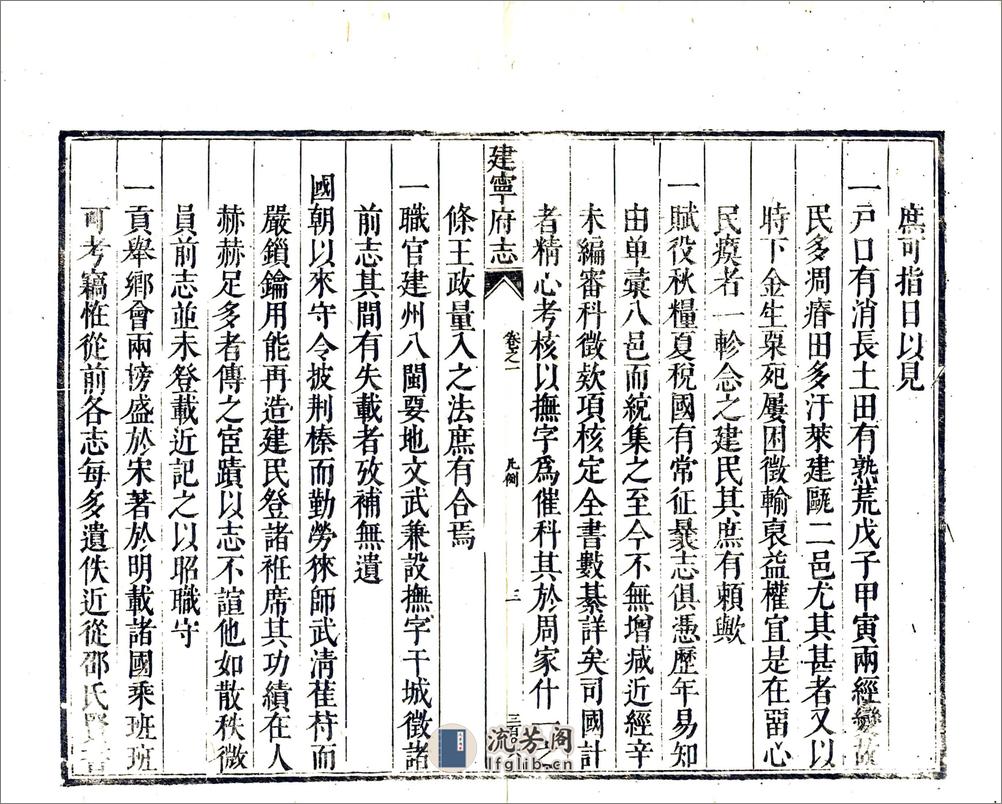 庶可指日以見
一戸口有消長土田有熟荒戊子甲寅兩經變故
民多凋瘠田多汙萊建甌二邑尤其甚者又以
時下金生粟死屢困徵輸裒益權宜是在畱心
民瘼者一軫念之建民其庶有賴歟
一賦役秋糧夏稅國有常征曩志俱憑歷年易知
由单彙八邑而統集之至今不無增减近經辛
未編審科徵欵項核定全書數綦詳矣司國計
者精心考核以撫字爲催科其於周家什一之
建寧府志
卷之一
凡例
三
條王政量入之法庶有合焉
一職官建州八閩要地文武兼設撫字干城徵諸
前志其間有失載者攷補無遺
國朝以來守令披荆榛而勤勞徠師武淸萑苻而
嚴鎖鑰用能再造建民登諸袵席其功績在人
赫赫足多者傳之宦蹟以志不諠他如散秩微
員前志並未登載近記之以昭職守
一貢舉鄉會兩榜盛於宋著於明載諸國乘班班
可考竊惟從前各志每多遺佚近從邵氏賢
流芳阁
lfglib.com